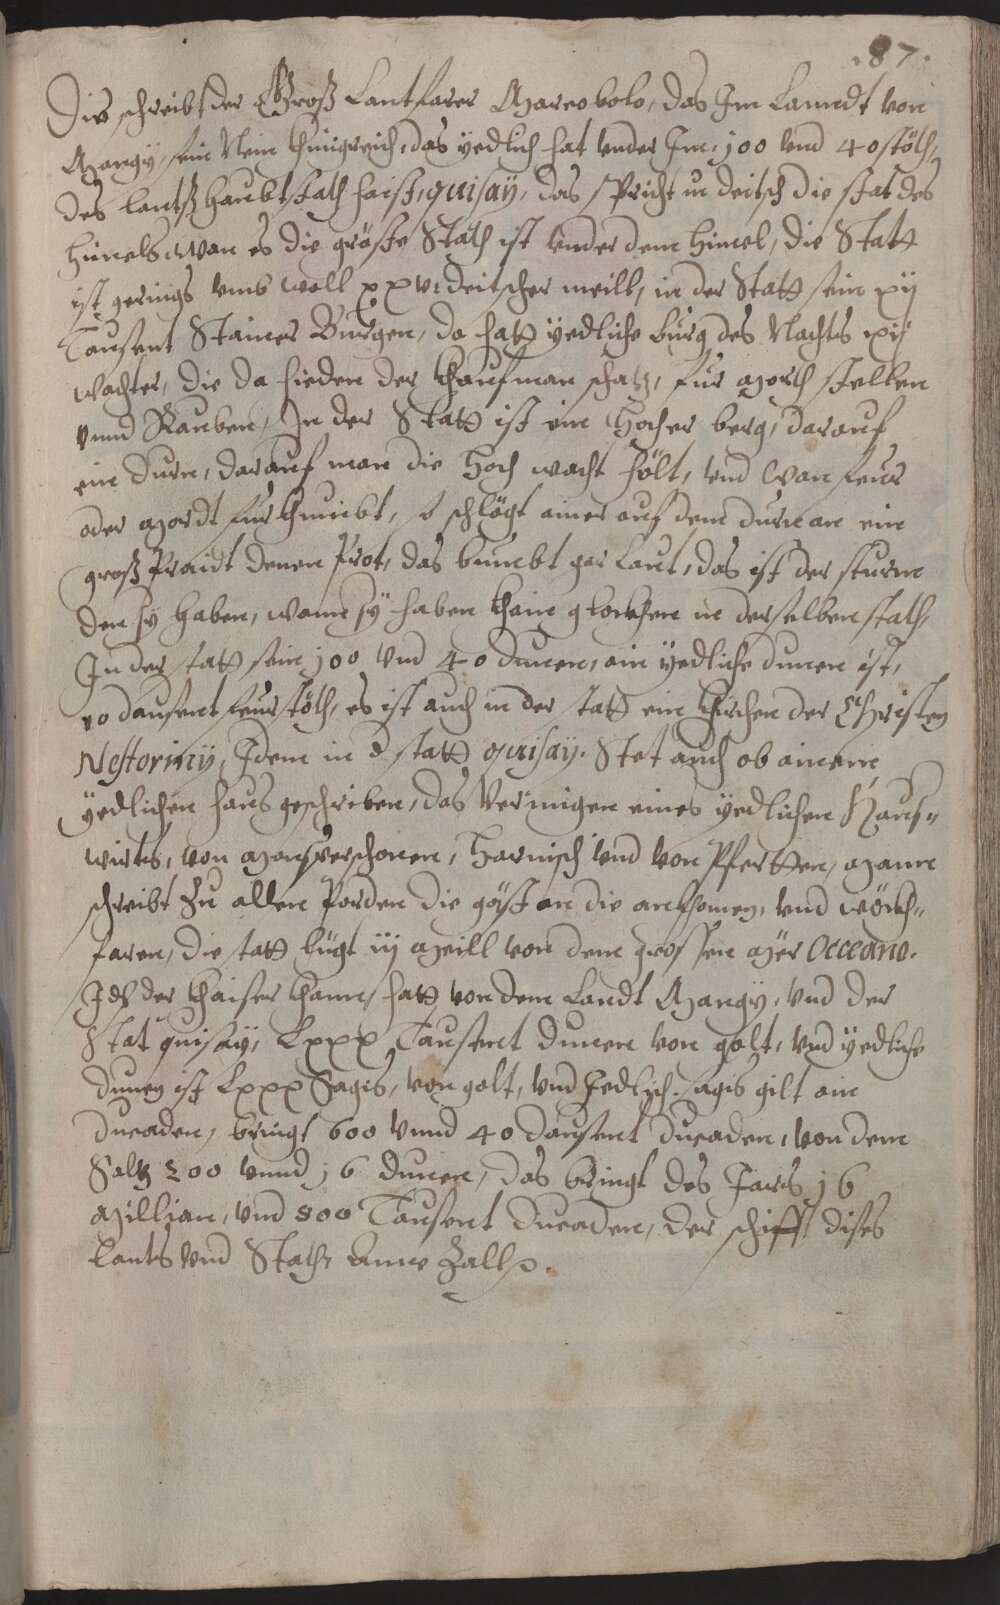 .87.
Die schreibt der Groß Lantfarer Marcobolo, das Im Lanndt von
Mangÿ, sein Nein Khunigreich, das yedlich hat vnder Im, 100 vnd 40 stöth,
des lantß haubtstath haist, quisaÿ, das spricht in deitsch die stat des
himels, wan es die gröste Stath ist vnder dem himel, die Statt
ist gerings vmb woll xxv deitscher meill, in der Statt sein xij
Tausent Stainer Burgen, da hatt ÿedliche burg des Nachts xij
wachter, die da hieden der Khaufman schatz, fur mortt stellen
vnnd Rauben, In der Statt ist ein Hocher berg, darauf
ein durn, darauf man die Hoch wacht hölt, vnd wan feur
oder mordt furkhumbt, so schlögt ainer auf dem durn an ein
groß Praidt denen Prot, das bumbt gar laut, das ist der sturm
den sÿ haben, wann sÿ haben khain glockhen in derselben stath,
In der statt sein 100 vnd 40 dumen, ain ÿedliche dumen ist,
10 dausent feurstöth, es ist auch in der statt ein Khirchen der Christen
Nestorinÿ, Idem in d statt quisaÿ. Stet auch ob ainem
ÿedlichen haus geschriben, das Vermigen eines yedlichen Haus-
wirts, von mansperschonen, Harnisch vnd von Pfertten, mann
schreibt Zu allen Porden die göst an die ankhomen, vnd wöckh-
faren, die statt lügt iij meill von dem grossen mer Occeano.
Idem der Khaiser Khann hatt von dem Landt Mangÿ, vnd der
Stat quisaÿ, Lxxx Tausent dumen von golt, vnd ÿedliche
dumen ist Lxxx Sagis, von golt, vnd Jedlich sagis gilt ain
ducaden, bringt 600 vnnd 40 dausent ducaden, von dem
Saltz 200 vnnd 16 dumen, das bringt des Jars 16
Million, vnd 800 Tausent ducaden, der schiff dises
lants vnd Stath, Anne Zall